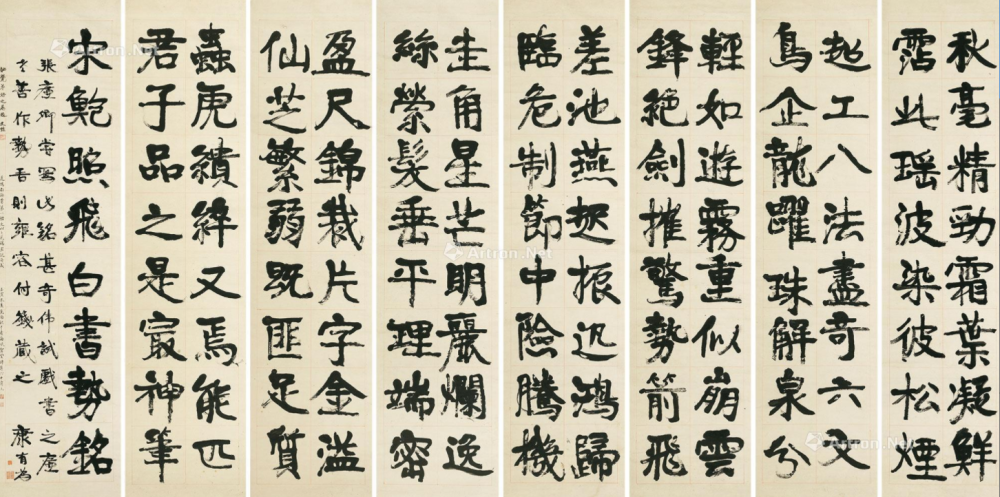 秋毫精勁霜葉凝鮮
霑此瑶波染彼松煙
超工八法盡奇六文
鳥企龍躍珠解泉分
輕如遊霧重似崩雲
鋒絕劍摧驚勢箭飛
差池燕起振迅鴻歸
臨危制節中險騰機
圭角星芒明麗爛逸
絲縈髮垂平理端密
盈尺錦裁片字金溢
仙芝繁弱既匪足質
蟲虎續碎又焉能匹
君子品之是最神筆
宋鮑照飛白書勢銘
張廉卿嘗寫此銘甚奇偉試戲書之廉
善作勢吾則容付籛藏之 康有為
Artron.Net